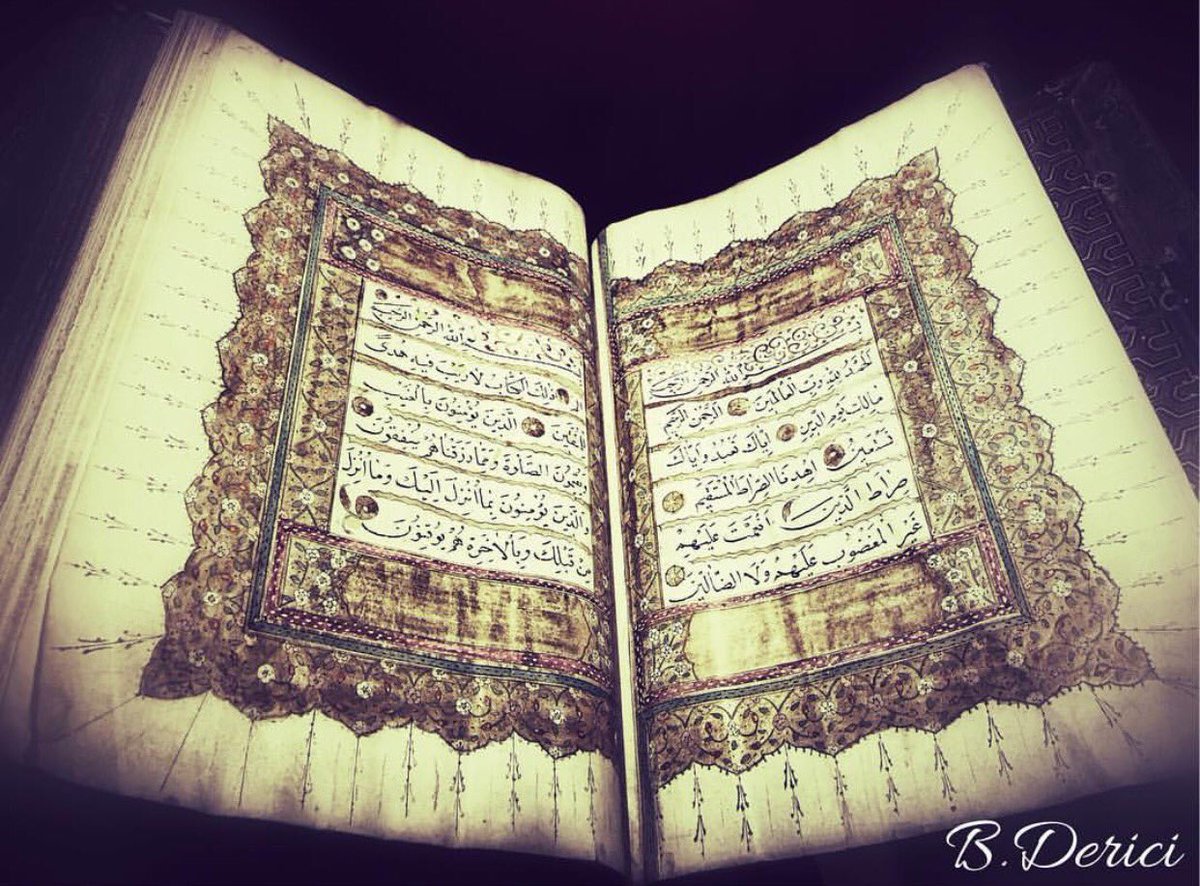 بِسْمِ اللهِ الرَّحْمٰنِ الرَّحِيمِ
اَلْحَمْدُ لِلّٰهِ رَبِّ الْعَالَمِينَ الرَّحْمٰنِ الرَّحِيمِ
مَالِكِ يَوْمِ الدِّينِ اِيَّاكَ نَعْبُدُ وَاِيَّاكَ
نَسْتَعِينُ اِهْدِنَا الصِّرَاطَ الْمُسْتَقِيمَ
صِرَاطَ الَّذِينَ اَنْعَمْتَ عَلَيْهِمْ
غَيْرِ الْمَغْضُوبِ عَلَيْهِمْ وَلَا الضَّالِّينَ
اللهِ الرَّحْمٰنِ الرَّحِيمِ
الم ذٰلِكَ الْكِتَابُ لَا رَيْبَ فِيهِ هُدًى
لِلْمُتَّقِينَ اَلَّذِينَ يُؤْمِنُونَ بِالْغَيْبِ
وَيُقِيمُونَ الصَّلٰوةَ وَمِمَّا رَزَقْنَاهُمْ يُنْفِقُونَ
وَالَّذِينَ يُؤْمِنُونَ بِمَا اُنْزِلَ اِلَيْكَ وَمَا اُنْزِلَ
مِنْ قَبْلِكَ وَبِالْاٰخِرَةِ هُمْ يُوقِنُونَ
B.Derici